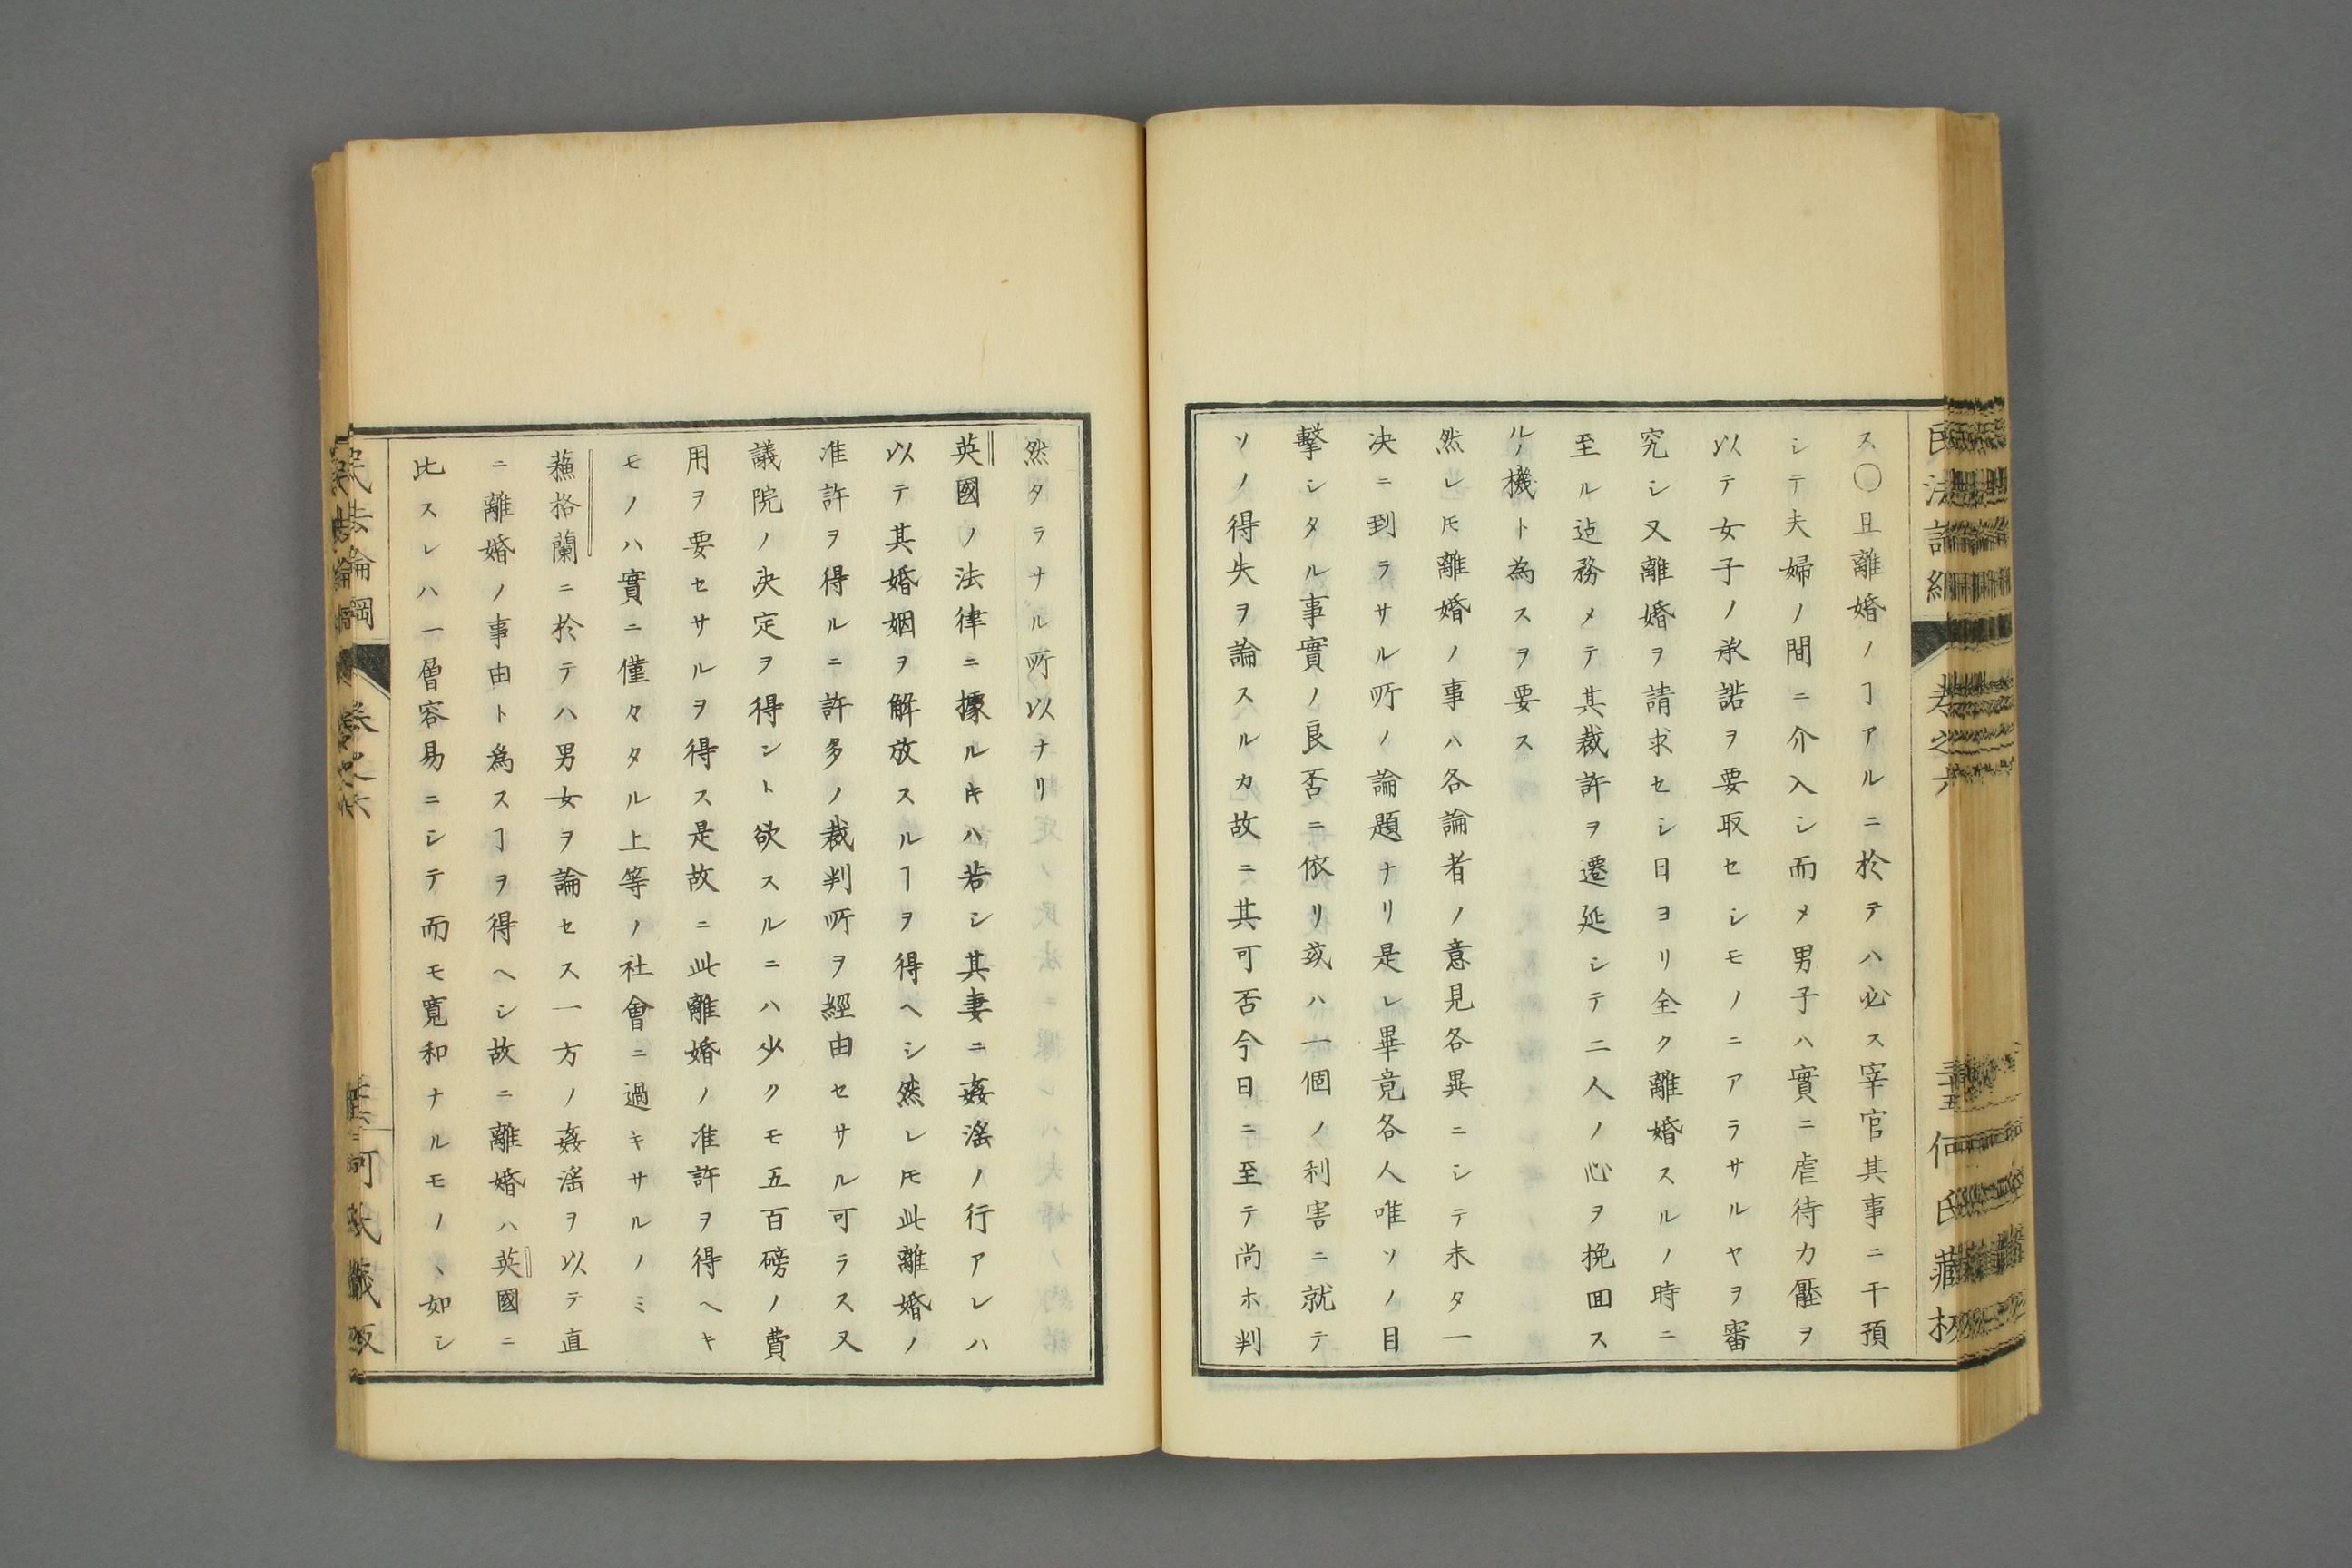 ス〇且離婚ノヿアルニ於テハ必ス宰官其事ニ干預
シテ夫婦ノ間ニ介入シ而メ男子ハ實ニ虐待カ壓ヲ
以テ女子ノ承諾ヲ要取セシモノニアラサルヤヲ審
究シ又離婚ヲ請求セシ日ヨリ全ク離婚スルノ時ニ
至ル迠務メテ其裁許ヲ遷延シテ二人ノ心ヲ挽回ス
ルノ機ト為スヲ要ス
然レ𪜈離婚ノ事ハ各論者ノ意見各異ニシテ未タ一
决ニ到ラサル所ノ論題ナリ是レ畢竟各人唯ソノ目
擊シタル事實ノ良否ニ依リ或ハ一個ノ利害ニ就テ
ソノ得失ヲ論スルカ故ニ其可否今日ニ至テ尚ホ判
然タラサル所以ナリ
英國ノ法律ニ據ルキハ若シ其妻ニ姦滛ノ行アレハ
以テ其婚姻ヲ解放スルヿヲ得ヘシ然レ𪜈此離婚ノ
准許ヲ得ルニ許多ノ裁判所ヲ經由セサル可ラス又
議院ノ决定ヲ得ント欲スルニハ少クモ五百磅ノ費
用ヲ要セサルヲ得ス是故ニ此離婚ノ准許ヲ得ヘキ
モノハ實ニ僅々タル上等ノ社會ニ過キサルノミ
蘓格蘭ニ於テハ男女ヲ論セス一方ノ姦滛ヲ以テ直
ニ離婚ノ事由ト為スヿヲ得ヘシ故ニ離婚ハ英國ニ
比スレハ一層容易ニシテ而モ寛和ナルモノヽ如シ
民法論綱 卷之六 何氏藏版